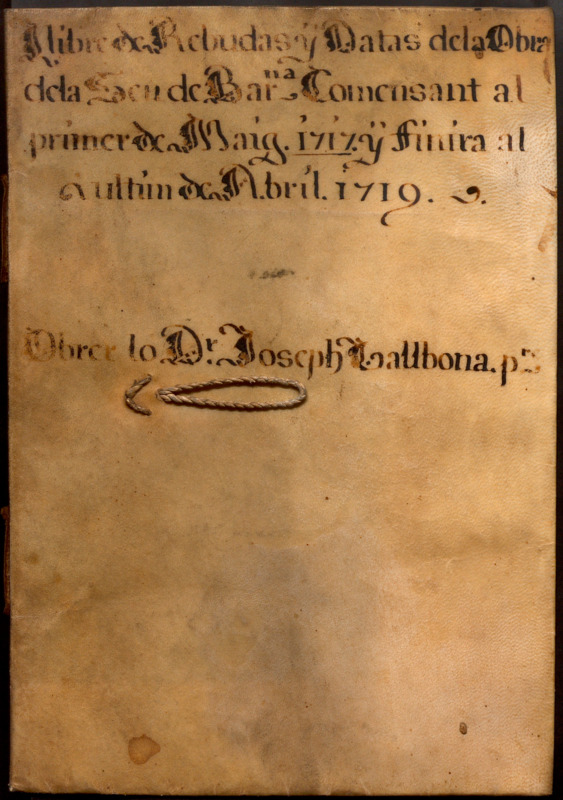 Llibre de Rebudas, ÿ Datas dela Obra
dela Seu de Barna. Comensant al
primer de Maig. 1717. ÿ finira al
ultim de Abril. 1719.
Obrer lo Dr. Joseph Vallbona. pre.